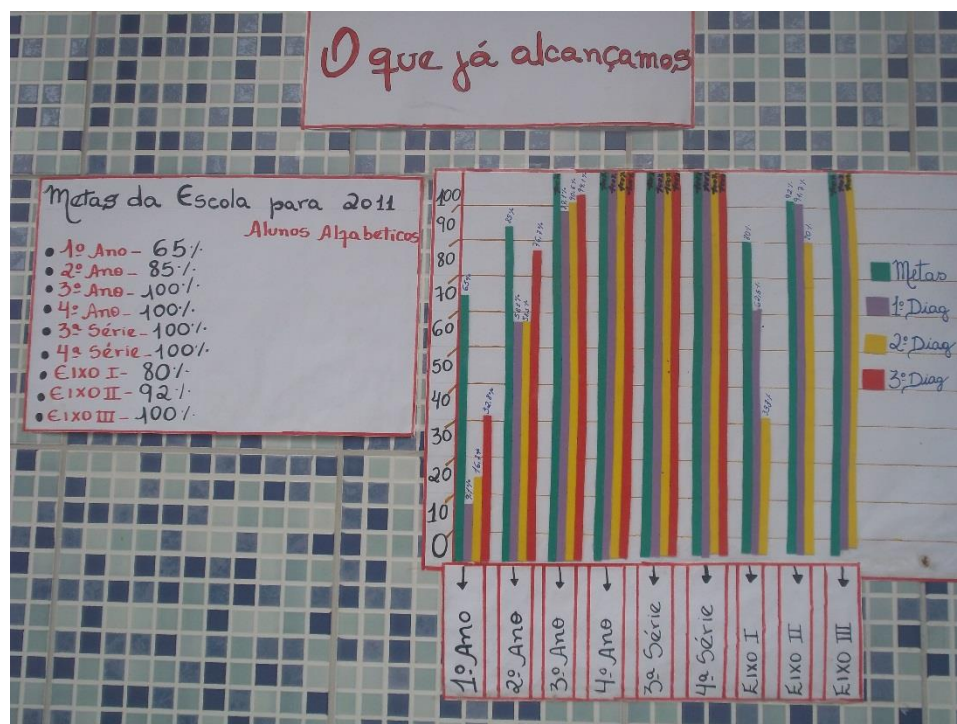 O que já alcançamos
Metas da Escola para 2011
Alunos Alfabeticos
• 1º Ano - 65%
• 2º Ano - 85%
• 3º Ano - 100%
• 4º Ano - 100%
• 3ª Série - 100%
• 4ª Série - 100%
• EIXO I - 80%
• EIXO II - 92%
• EIXO III - 100%
100
90
80
70
60
50
40
30
20
10
0
65%
16.2%
32.8%
80%
62.5%
92%
Metas
1º Diag
2º Diag
3º Diag
1º Ano
2º Ano
3º Ano
4º Ano
3ª Série
4ª Série
EIXO I
EIXO II
EIXO III